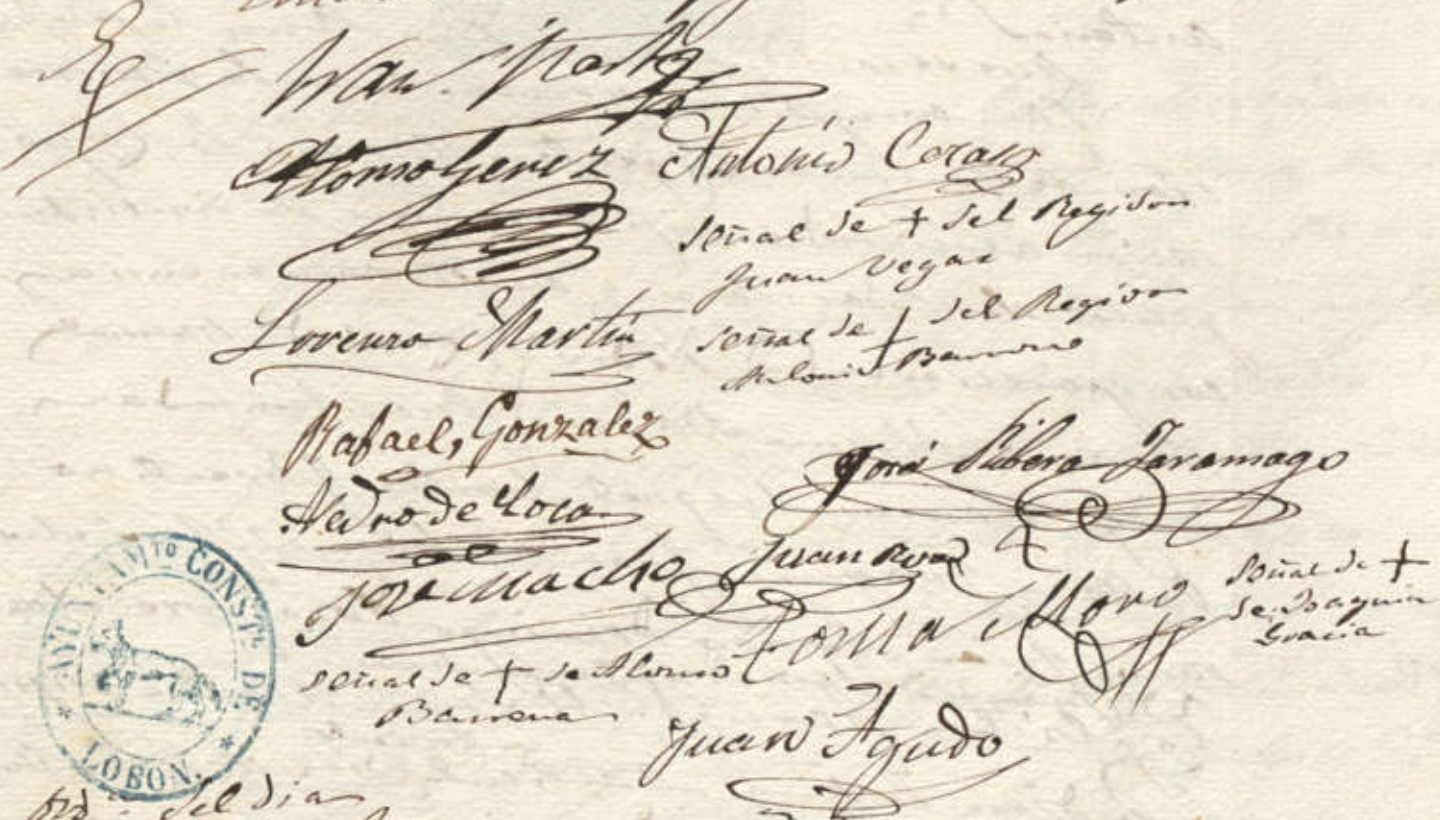 Alonso Gerez
Antonio Corazo
señal de + del Regidor
Juan Vegas
Lorenzo Martin
señal de + del Regidor
Antonio Barroso
Rafael, Gonzalez
José Ribera Jaramago
Pedro de
Jose Macho
Juan
Toma Moro
señal de +
de Joaquin
Gracia
señal de + de Alonso
Barrena
Juan Agudo
AYUNTAMTO CONSTL DE
LOBON.
del dia